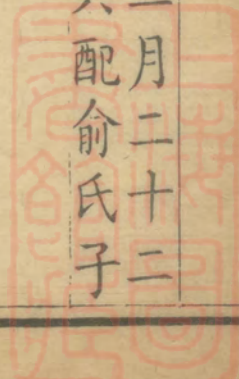 月二十二
配俞氏子